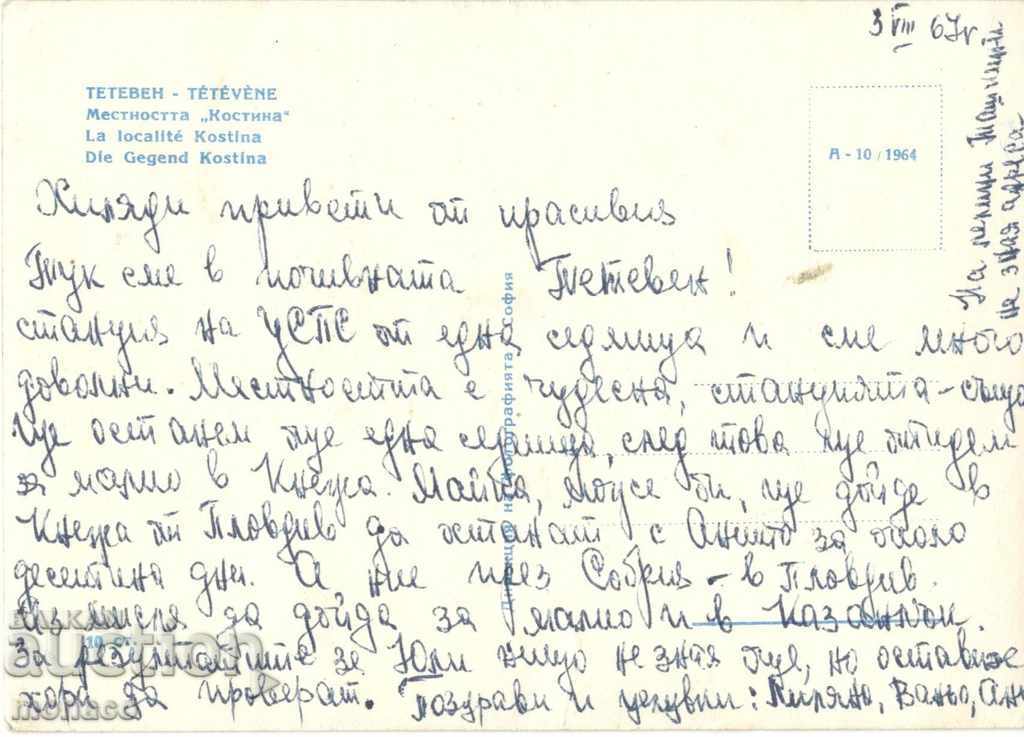 3 VIII 67г.
ТЕТЕВЕН - TÉTÉVÈNE
Местността „Костина“
La localité Kostina
Die Gegend Kostina
А - 10 / 1964
Хиляди привети от красивия
Тетевен!
Тук сме в почивната
станция на ЦСПС от една седмица и сме много
доволни. Местността е чудесна, станцията - също
Ще останем още една седмица, след това ще отидем
за малко в Кнежа. Майка, може би, ще дойде в
Кнежа от Пловдив да останат с Анито за около
десетина дни. А ние през
в Пловдив.
да дойда за малко и в Казанлък.
За резултатите за Юли нищо не зная още, но оставихме
хора да проверат. Поздрави и целувки: Лиляна, Ваньо, Ани
На
не зная адреса
София
10 ст.
auction